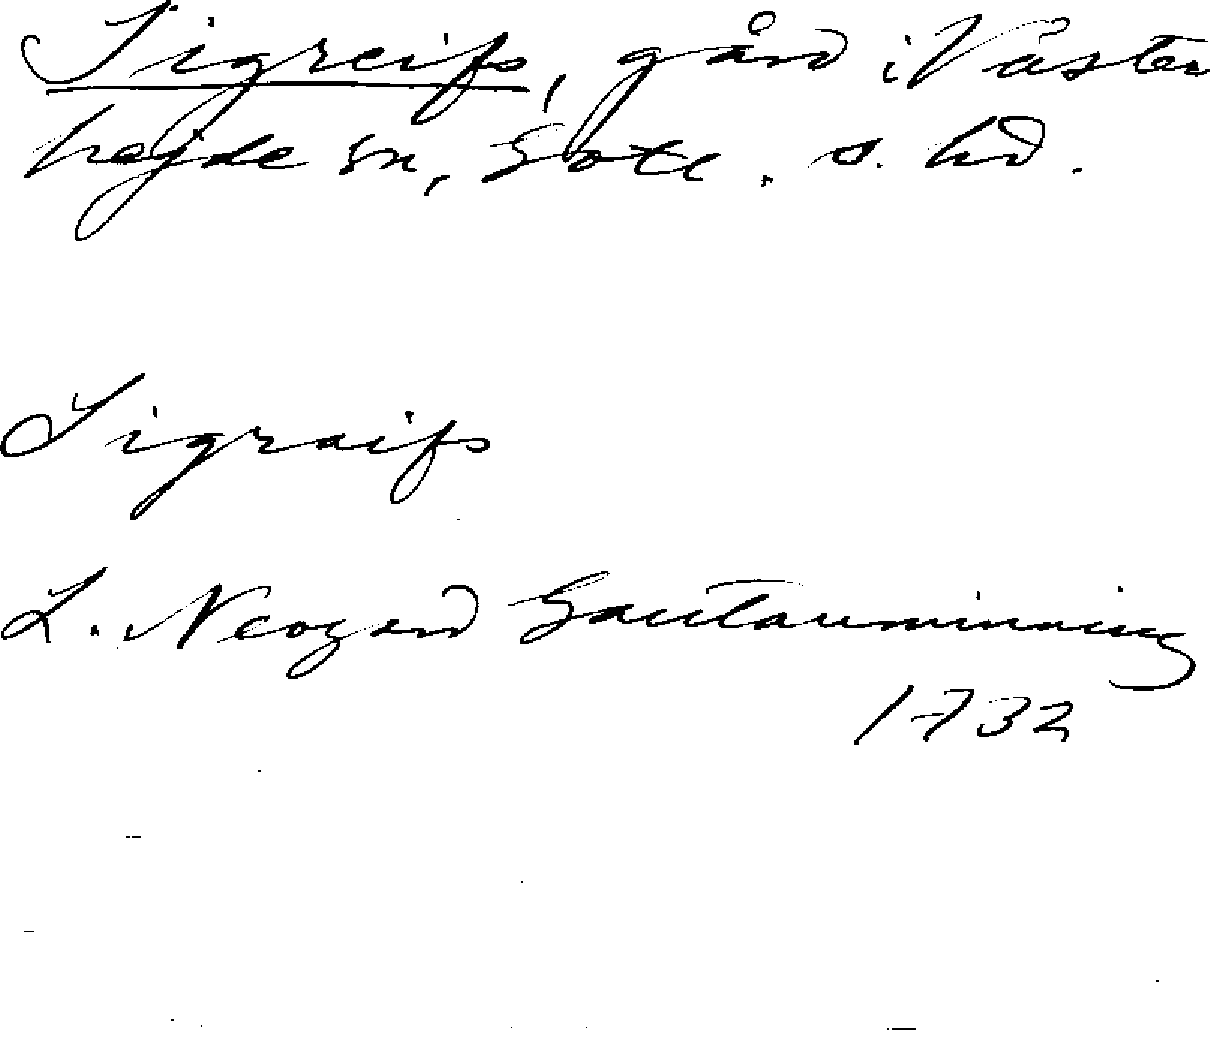 Sigreifs, gård i Väster
hejde sn, Gotl. s. hd.
Sigraifs
L. Neogard Gautauminning
1732